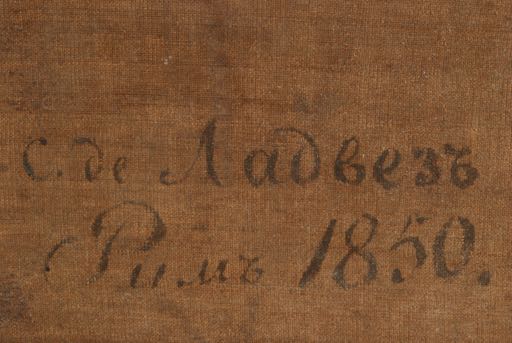 С. де Ладвезъ
Римъ 1850.